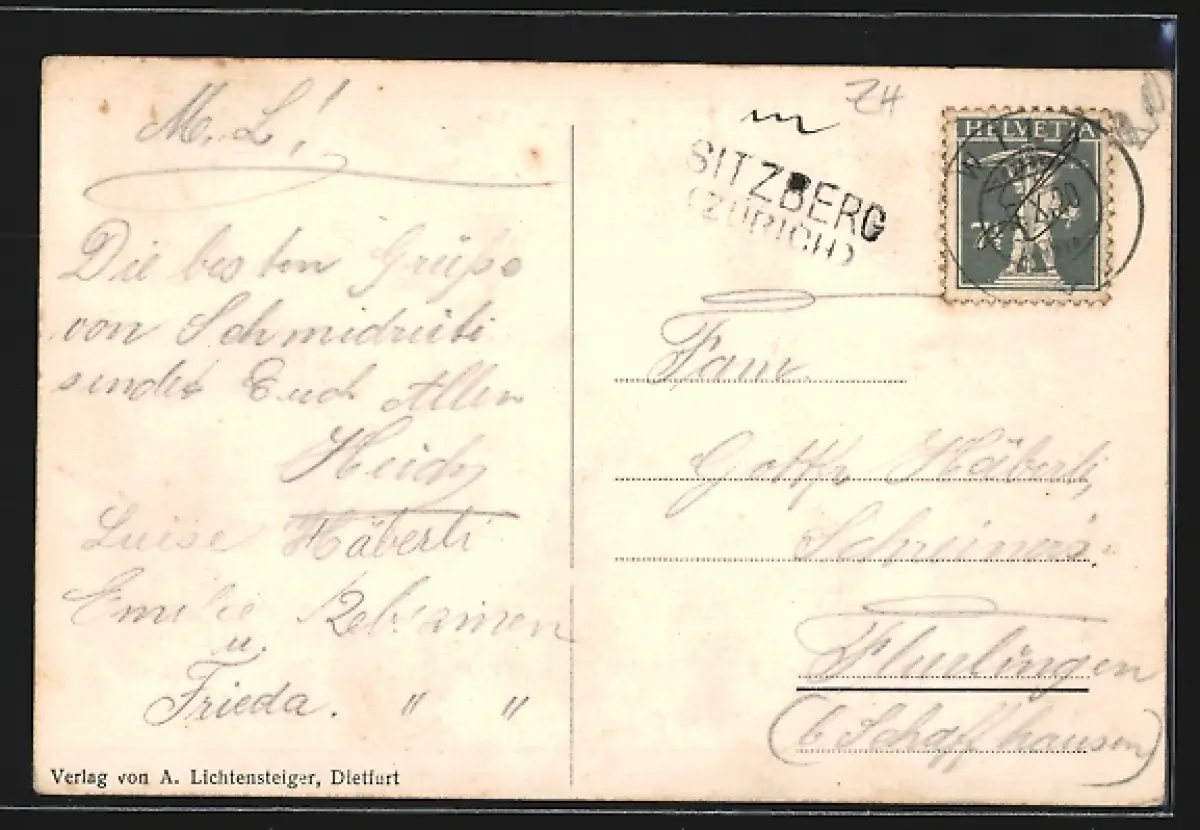 M. L!
Die besten Grüße
von Schmidrüti
sendet Euch Allen
Heidy
Luise Häberli
Emilie
u.
Frieda. " "
Verlag von A. Lichtensteiger, Dietfurt
ZH
SITZBERG
(ZÜRICH)
HELVETIA
7½
Fam.
Gottfr Häberli,
Schreiners.
Flurlingen
(b Schaffhausen)